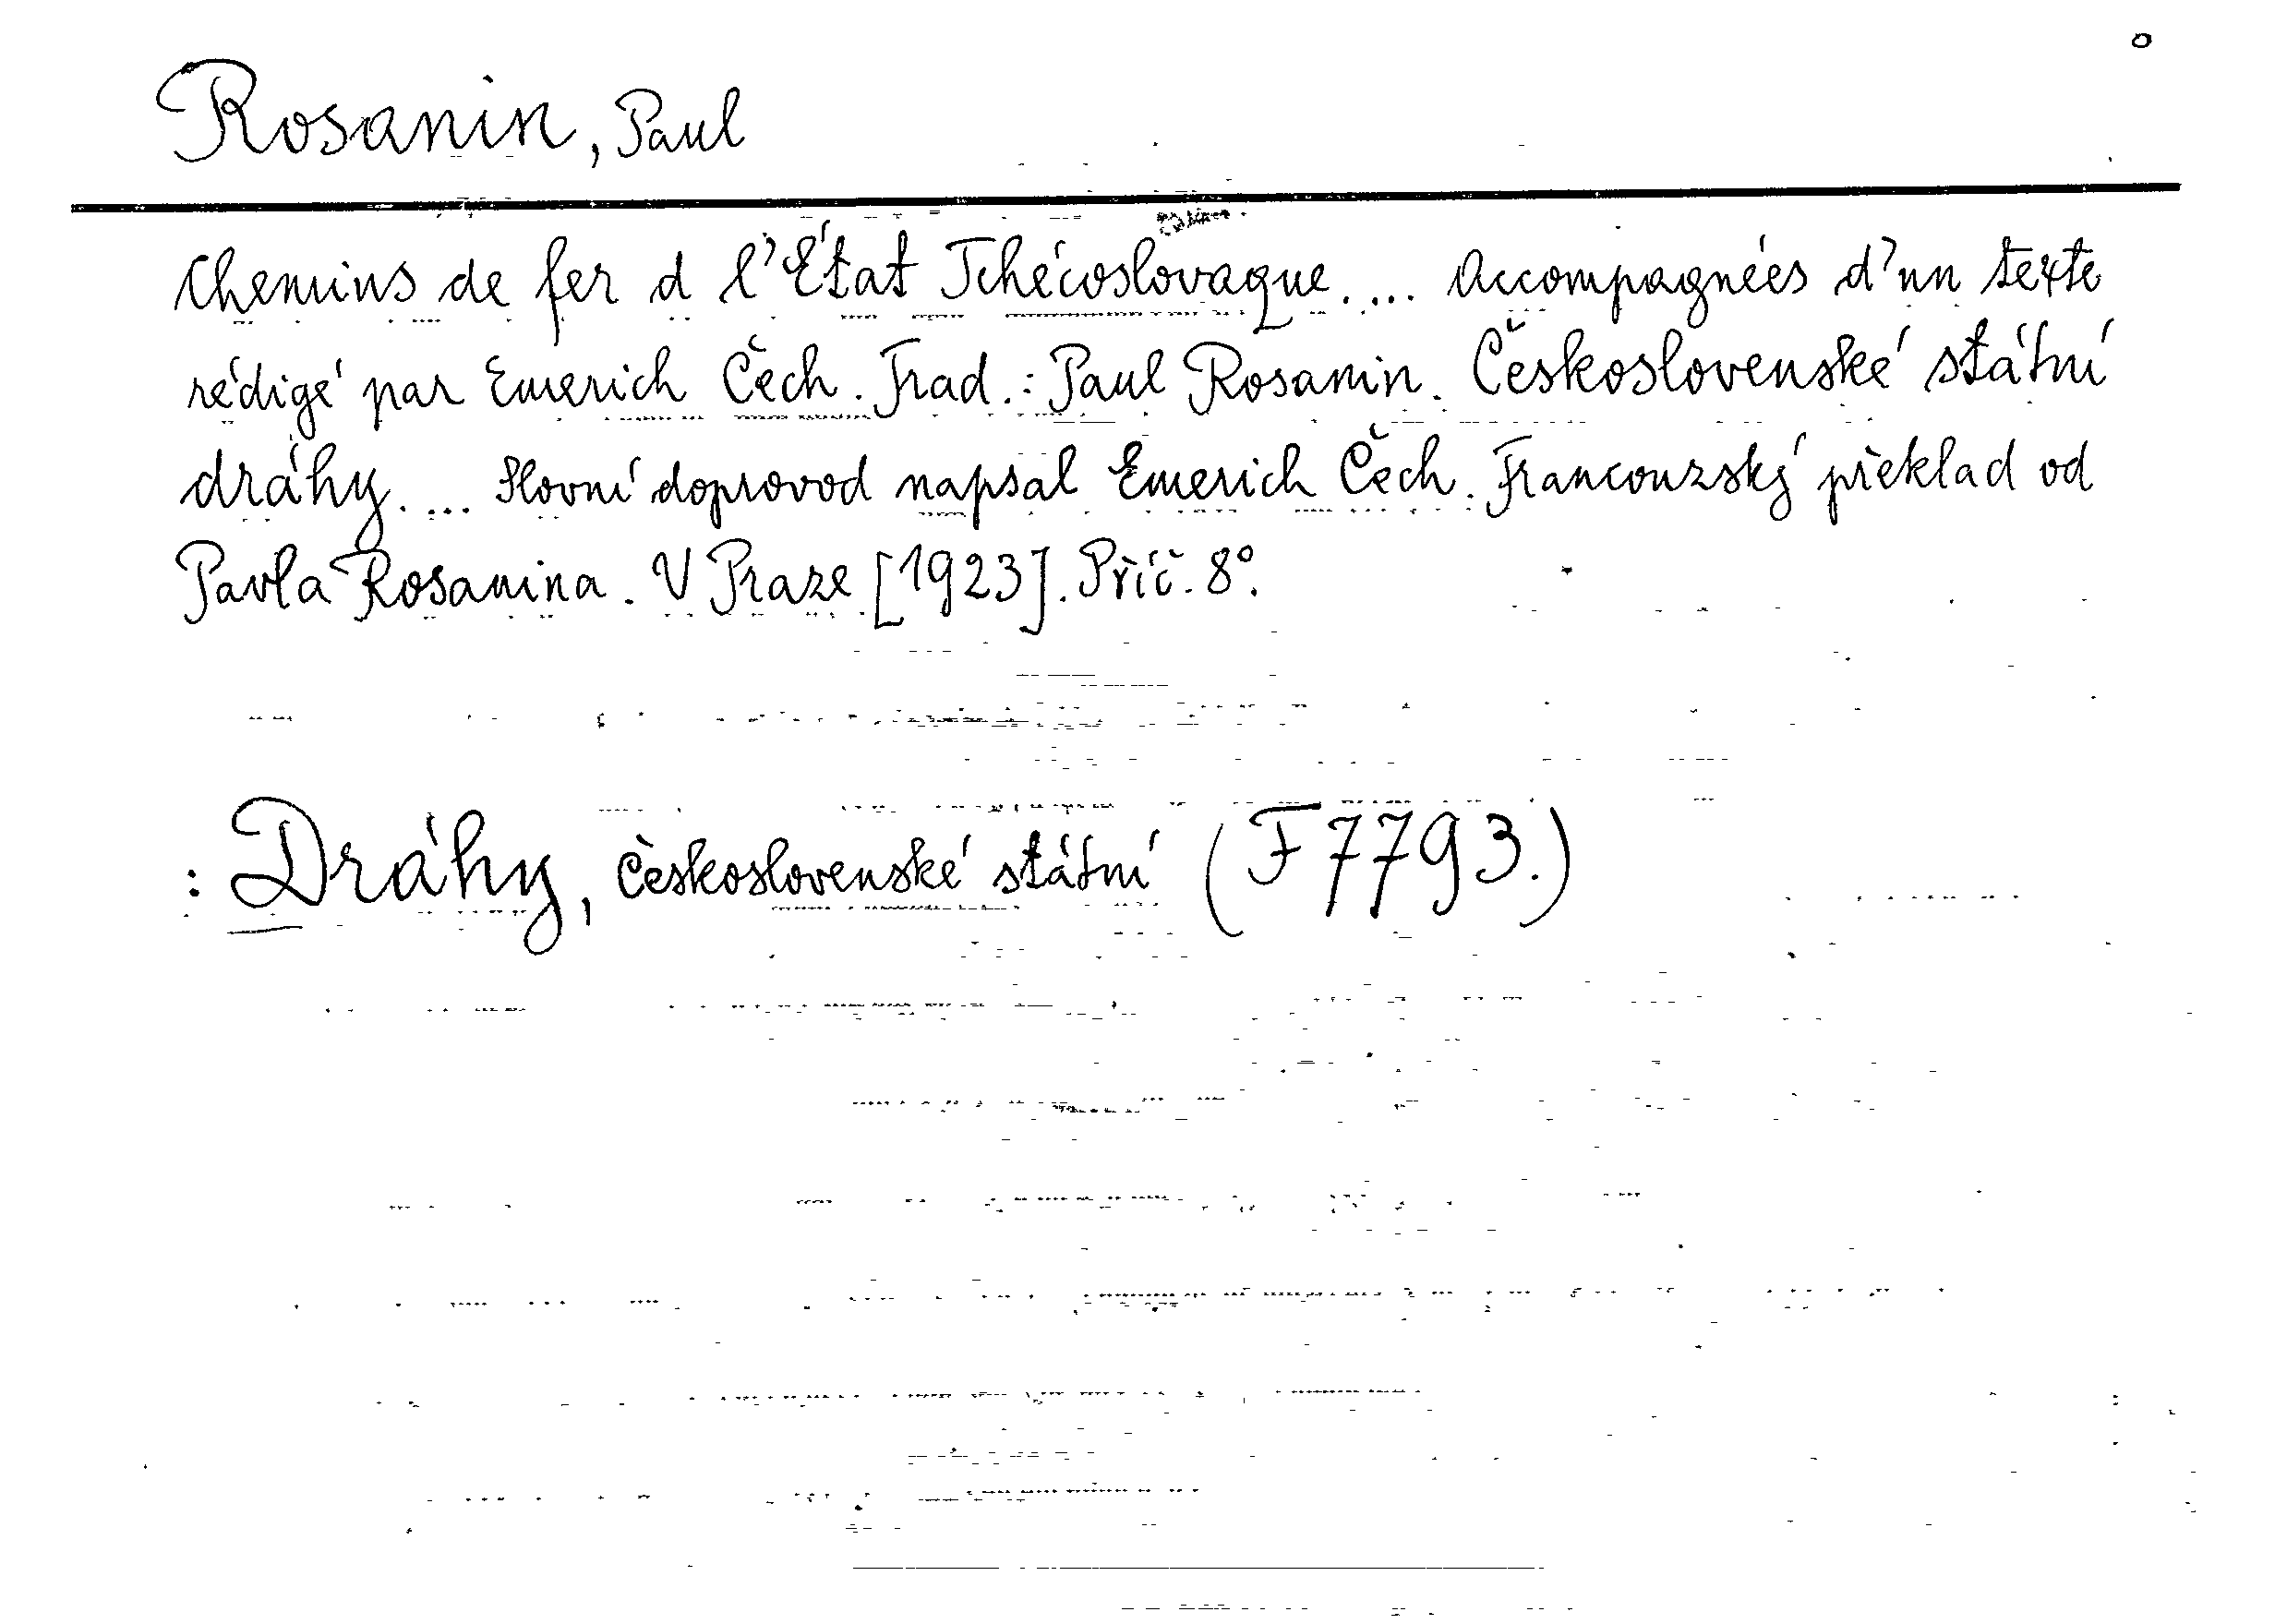 Rosanin, Paul
Chemins de fer d l'État Tchécoslovaque. ... Accompagnées d'un texte
rédigé par Emerich Čech. Trad.: Paul Rosanin. Československé státní
dráhy. ... Slovní doprovod napsal Emerich Čech. Francouzský překlad od
Pavla Rosanina. V Praze [1923]. Příč. 8°.
: Dráhy, československé státní (F 7793.)